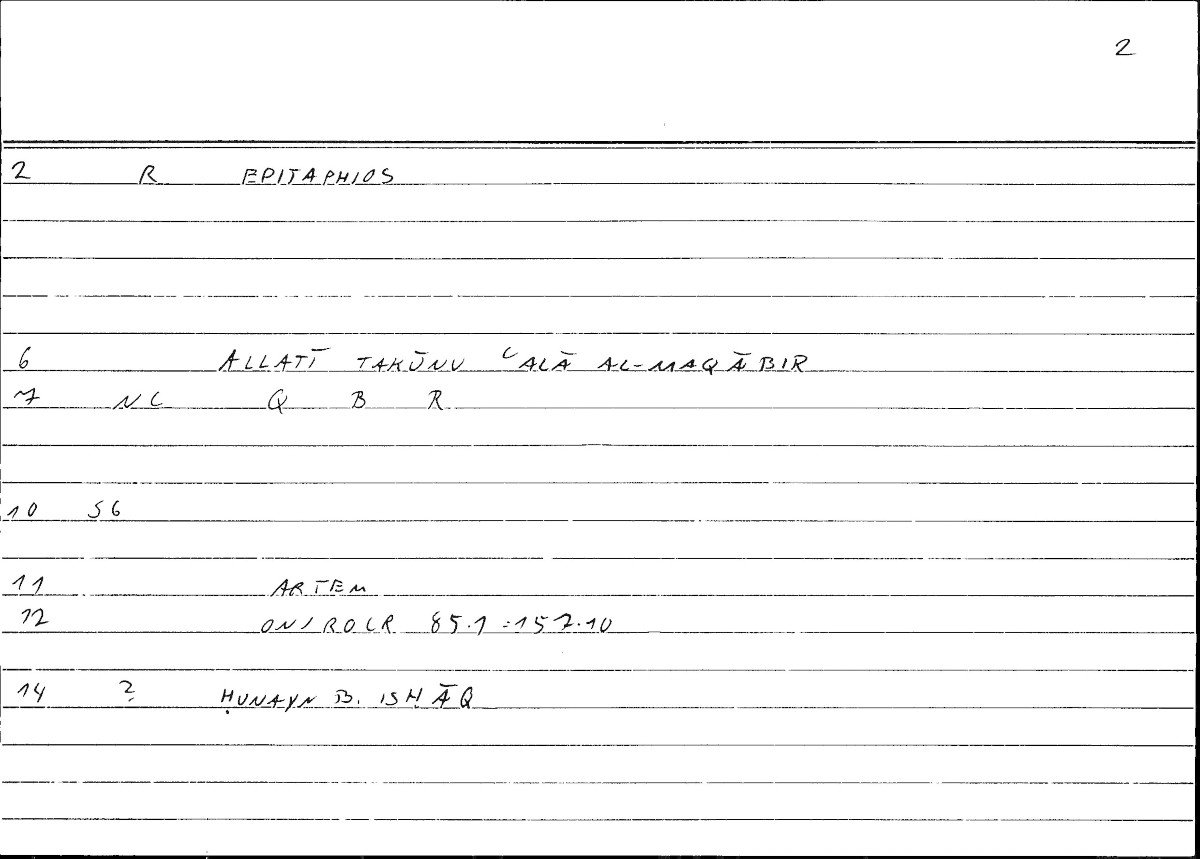 2
2 R EPITAPHIOS
6 ALLATĪ TAKŪNU ʿALĀ AL-MAQĀBIR
7 NC Q B R
10 56
11 ARTEM
12 ONIROCR 85.1 = 157.10
14 ? ḤUNAYN B. ISḤĀQ